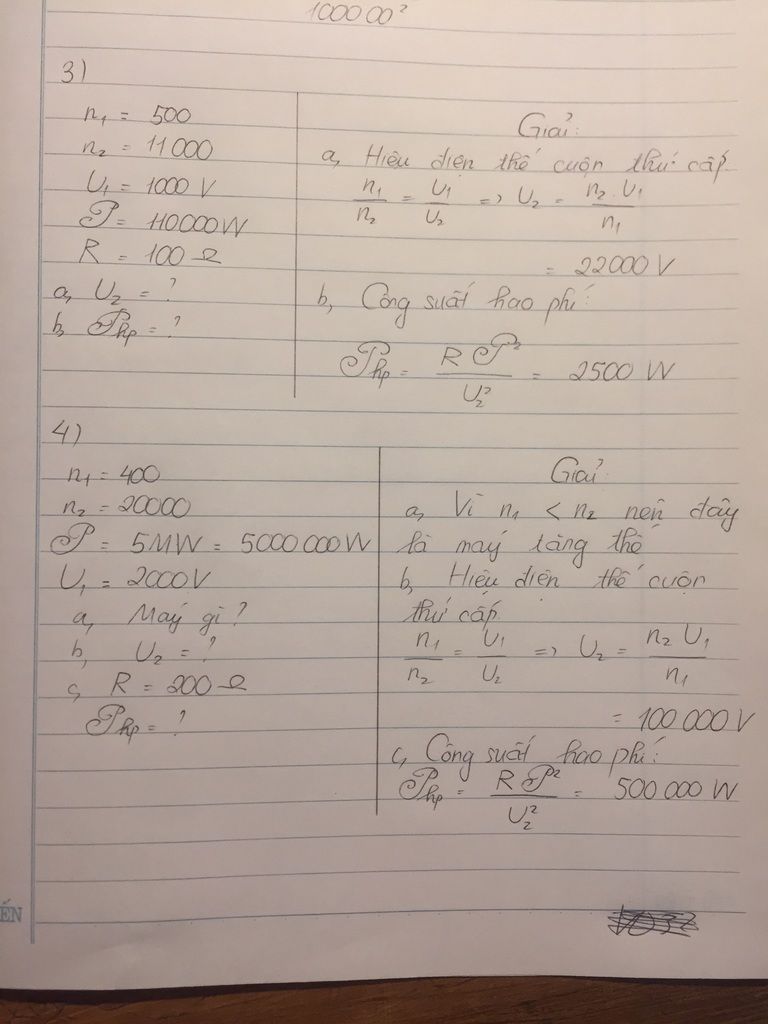 100000²
3)
n₁ = 500
n₂ = 11000
U₁ = 1000 V
P = 110000 W
R = 100 Ω
a, U₂ = ?
b, Php = ?
Giải:
a, Hiệu điện thế cuộn thứ cấp
n₁/n₂ = U₁/U₂ => U₂ = n₂.U₁/n₁
= 22000 V
b, Công suất hao phí:
Php = RP²/U₂² = 2500 W
4)
n₁ = 400
n₂ = 20000
P = 5MW = 5000 000 W
U₁ = 2000V
a, Máy gì?
b, U₂ = ?
c, R = 200 Ω
Php = ?
Giải:
a, Vì n₁ < n₂ nên đây
là máy tăng thế
b, Hiệu điện thế cuộn
thứ cấp
n₁/n₂ = U₁/U₂ => U₂ = n₂ U₁/n₁
= 100 000 V
c, Công suất hao phí:
Php = RP²/U₂² = 500 000 W
ẾN